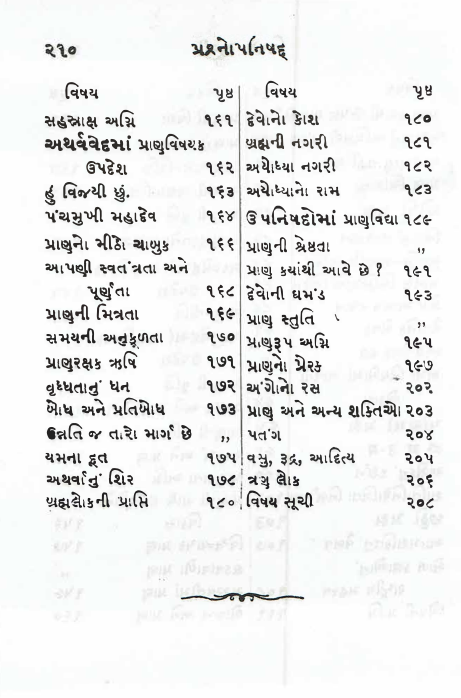 ૨૧૦ પ્રશ્નોપનિષદ્
વિષય પૃષ્ઠ
સહસ્રાક્ષ અગ્નિ ૧૬૧
અથર્વવેદમાં પ્રાણવિષયક
ઉપદેશ ૧૬૨
હું વિજયી છું. ૧૬૩
પંચમુખી મહાદેવ ૧૬૪
પ્રાણનો મીઠો ચાબુક ૧૬૬
આપણી સ્વતંત્રતા અને
પૂર્ણતા ૧૬૮
પ્રાણની મિત્રતા ૧૬૯
સમયની અનુકૂળતા ૧૭૦
પ્રાણરક્ષક ઋષિ ૧૭૧
વૃધ્ધતાનું ધન ૧૭૨
બોધ અને પ્રતિબોધ ૧૭૩
ઉન્નતિ જ તારો માર્ગ છે ,,
યમના દૂત ૧૭૫
અથર્વાનું શિર ૧૭૮
બ્રહ્મલોકની પ્રાપ્તિ ૧૮૦
વિષય પૃષ્ઠ
દેવોનો કોશ ૧૮૦
બ્રહ્મની નગરી ૧૮૧
અયોધ્યા નગરી ૧૮૨
અયોધ્યાનો રામ ૧૮૩
ઉપનિષદોમાં પ્રાણવિદ્યા ૧૮૯
પ્રાણની શ્રેષ્ઠતા ,,
પ્રાણ કયાંથી આવે છે ? ૧૯૧
દેવોની ઘમંડ ૧૯૩
પ્રાણ સ્તુતિ ,,
પ્રાણરૂપ અગ્નિ ૧૯૫
પ્રાણનો પ્રેરક ૧૯૭
અંગોનો રસ ૨૦૨
પ્રાણ અને અન્ય શક્તિઓ ૨૦૩
પતંગ ૨૦૪
વસુ, રૂદ્ર, આદિત્ય ૨૦૫
ત્રણ લોક ૨૦૬
વિષય સૂચી ૨૦૮